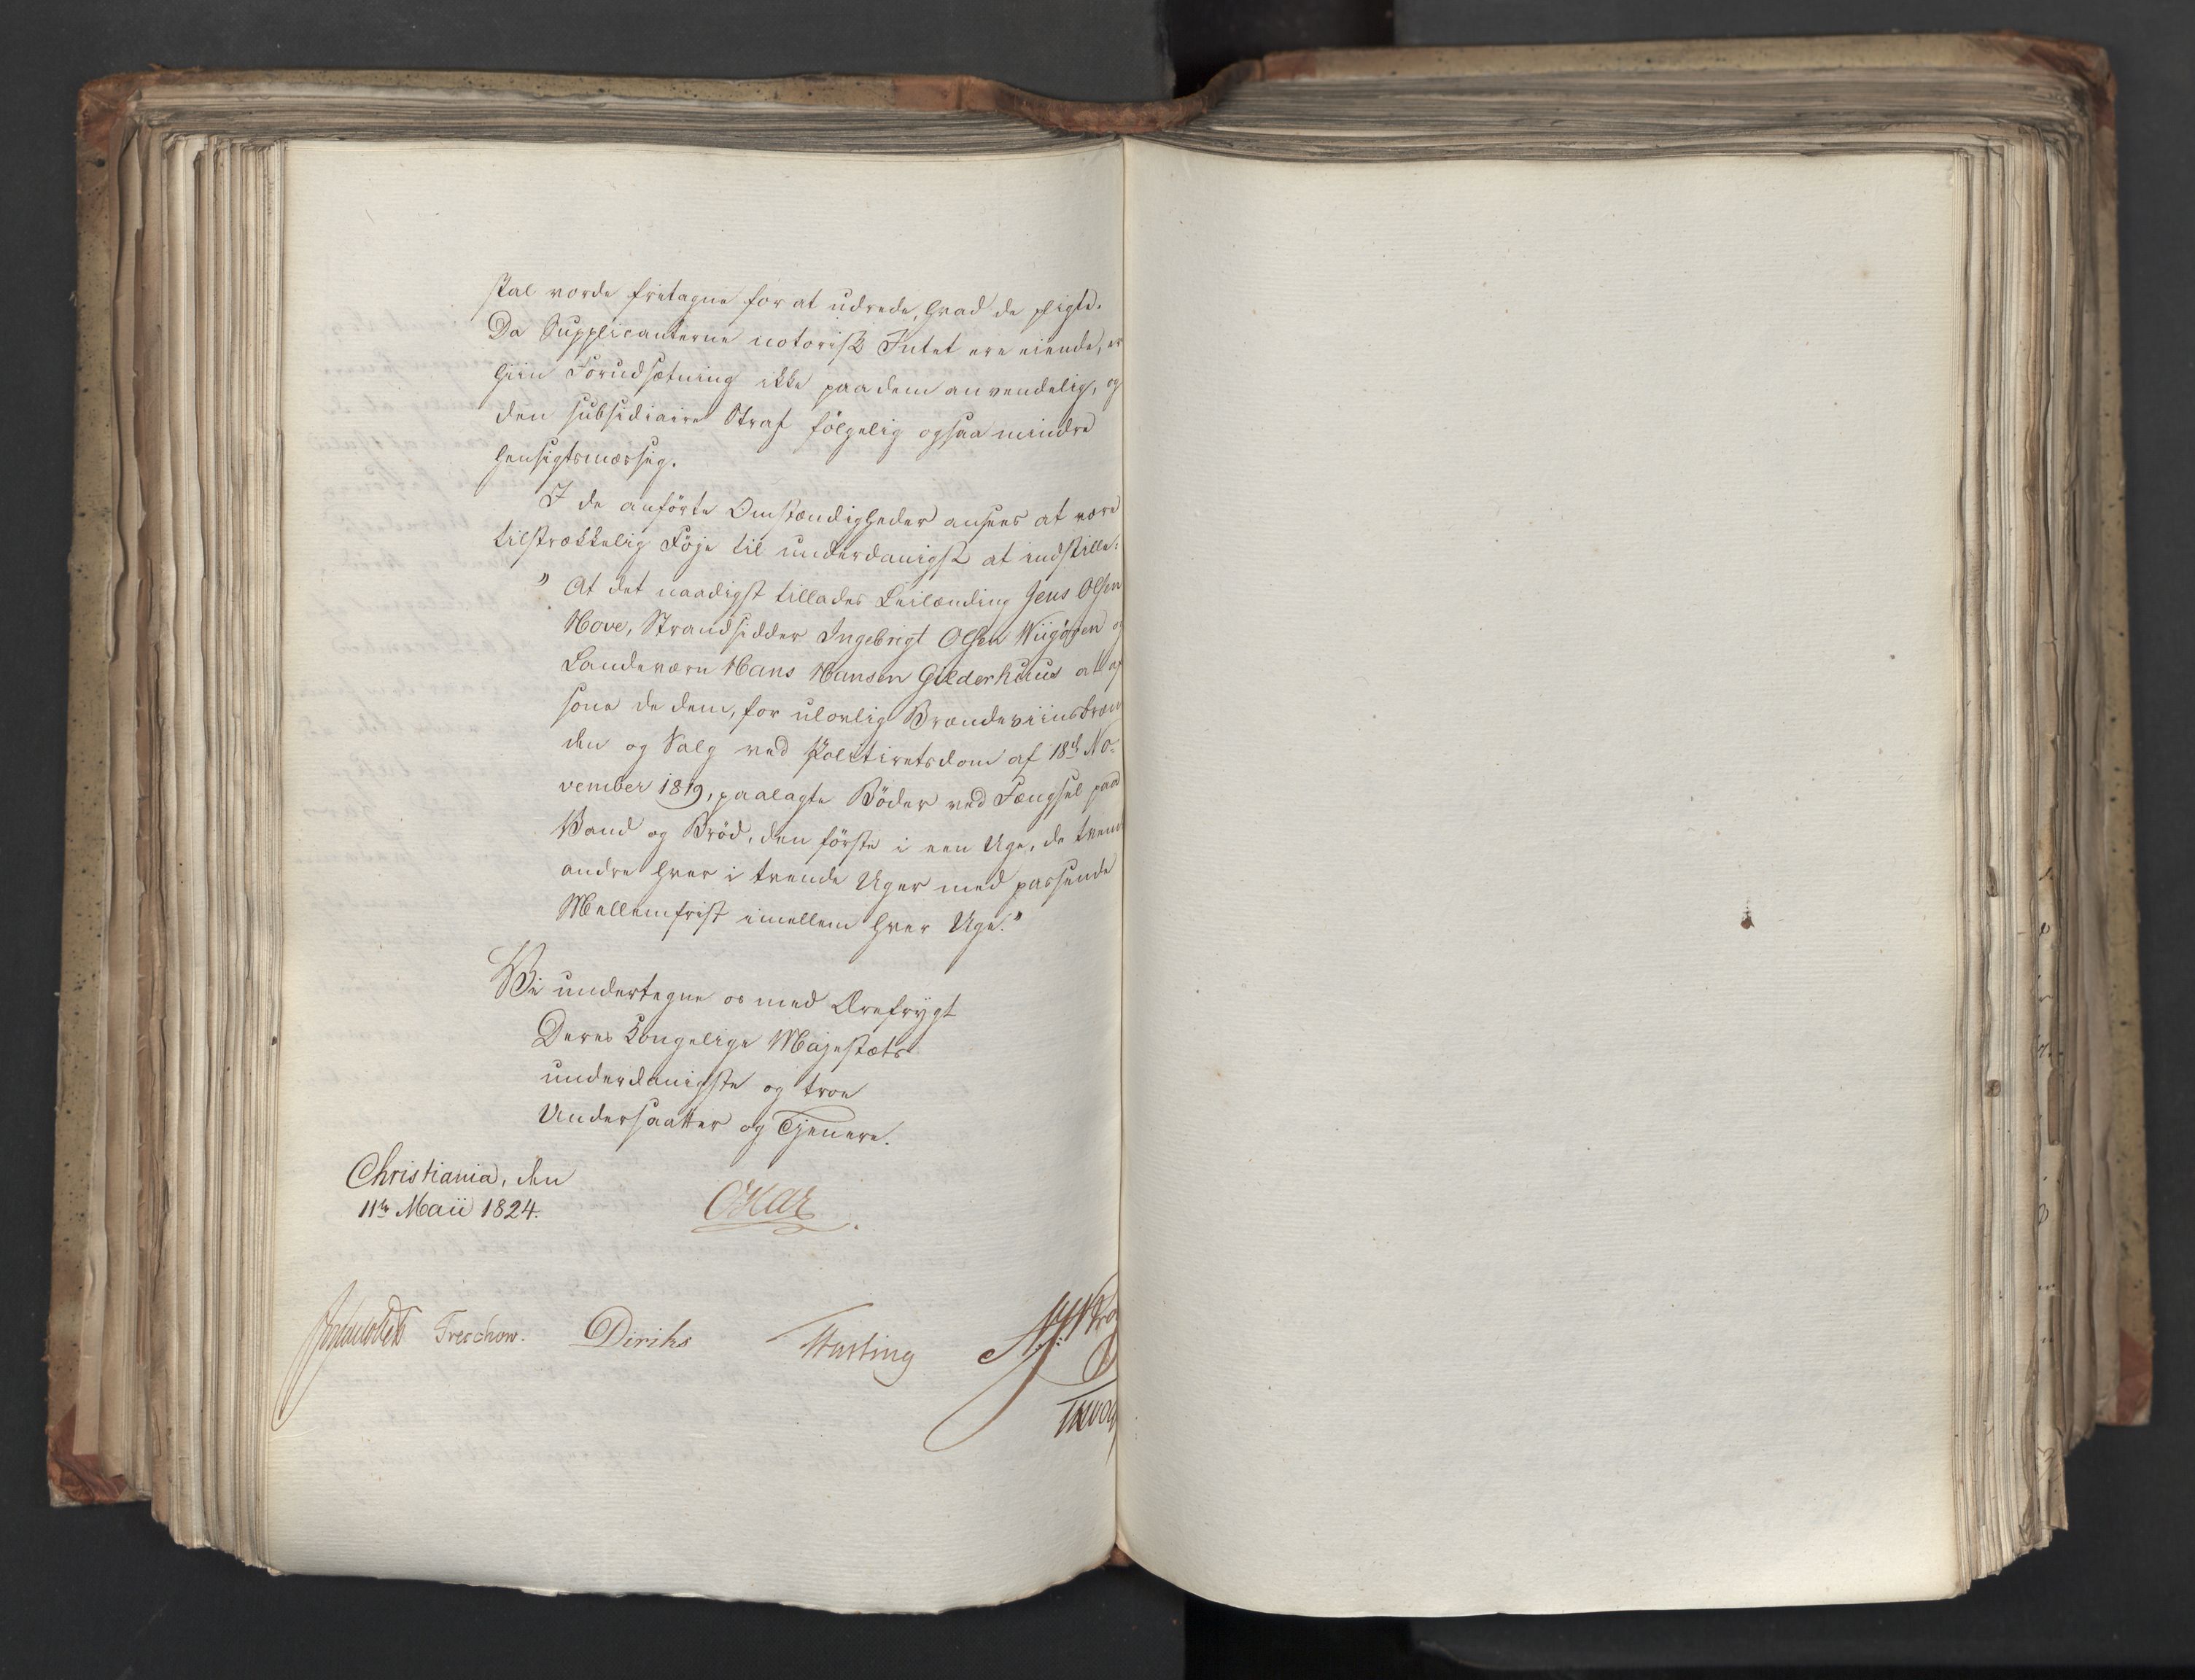 skal vorde fritagne for at udrede, hvad de pligte.
Da Supplicanterne notorisk Intet ere eiende, er
hiin Forudsætning ikke paa dem anvendelig, og
den subsidiaire Straf fölgelig ogsaa mindre
hensigtsmæssig.
I de anförte Omstændigheder ansees at være
tilstrækkelig Föje til underdanigst at indstille:
" At det naadigst tillades Leilænding Jens Olsen
Hove, Strandsidder Ingebrigt Olsen Wiigören og
Landeværn Hans Hansen Gilderhuus at af
sone de dem, for ulovlig Brændeviinsbræn
den og Salg ved Politieretsdom af 18de No-
vember 1819, paalagte Böder ved Fængsel paa
Vand og Bröd, den förste i een Uge, de tvende
andre hver i tvende Uger med passende
Mellemfrist imellem hver Uge."
Vi undertegne os med Ærefrygt
Deres Kongelige Majestæts
underdanigste og troe
Undersaatter og Tjenere.
Christiania, den
11te Maii 1824.
Oscar
Treschow. Diriks